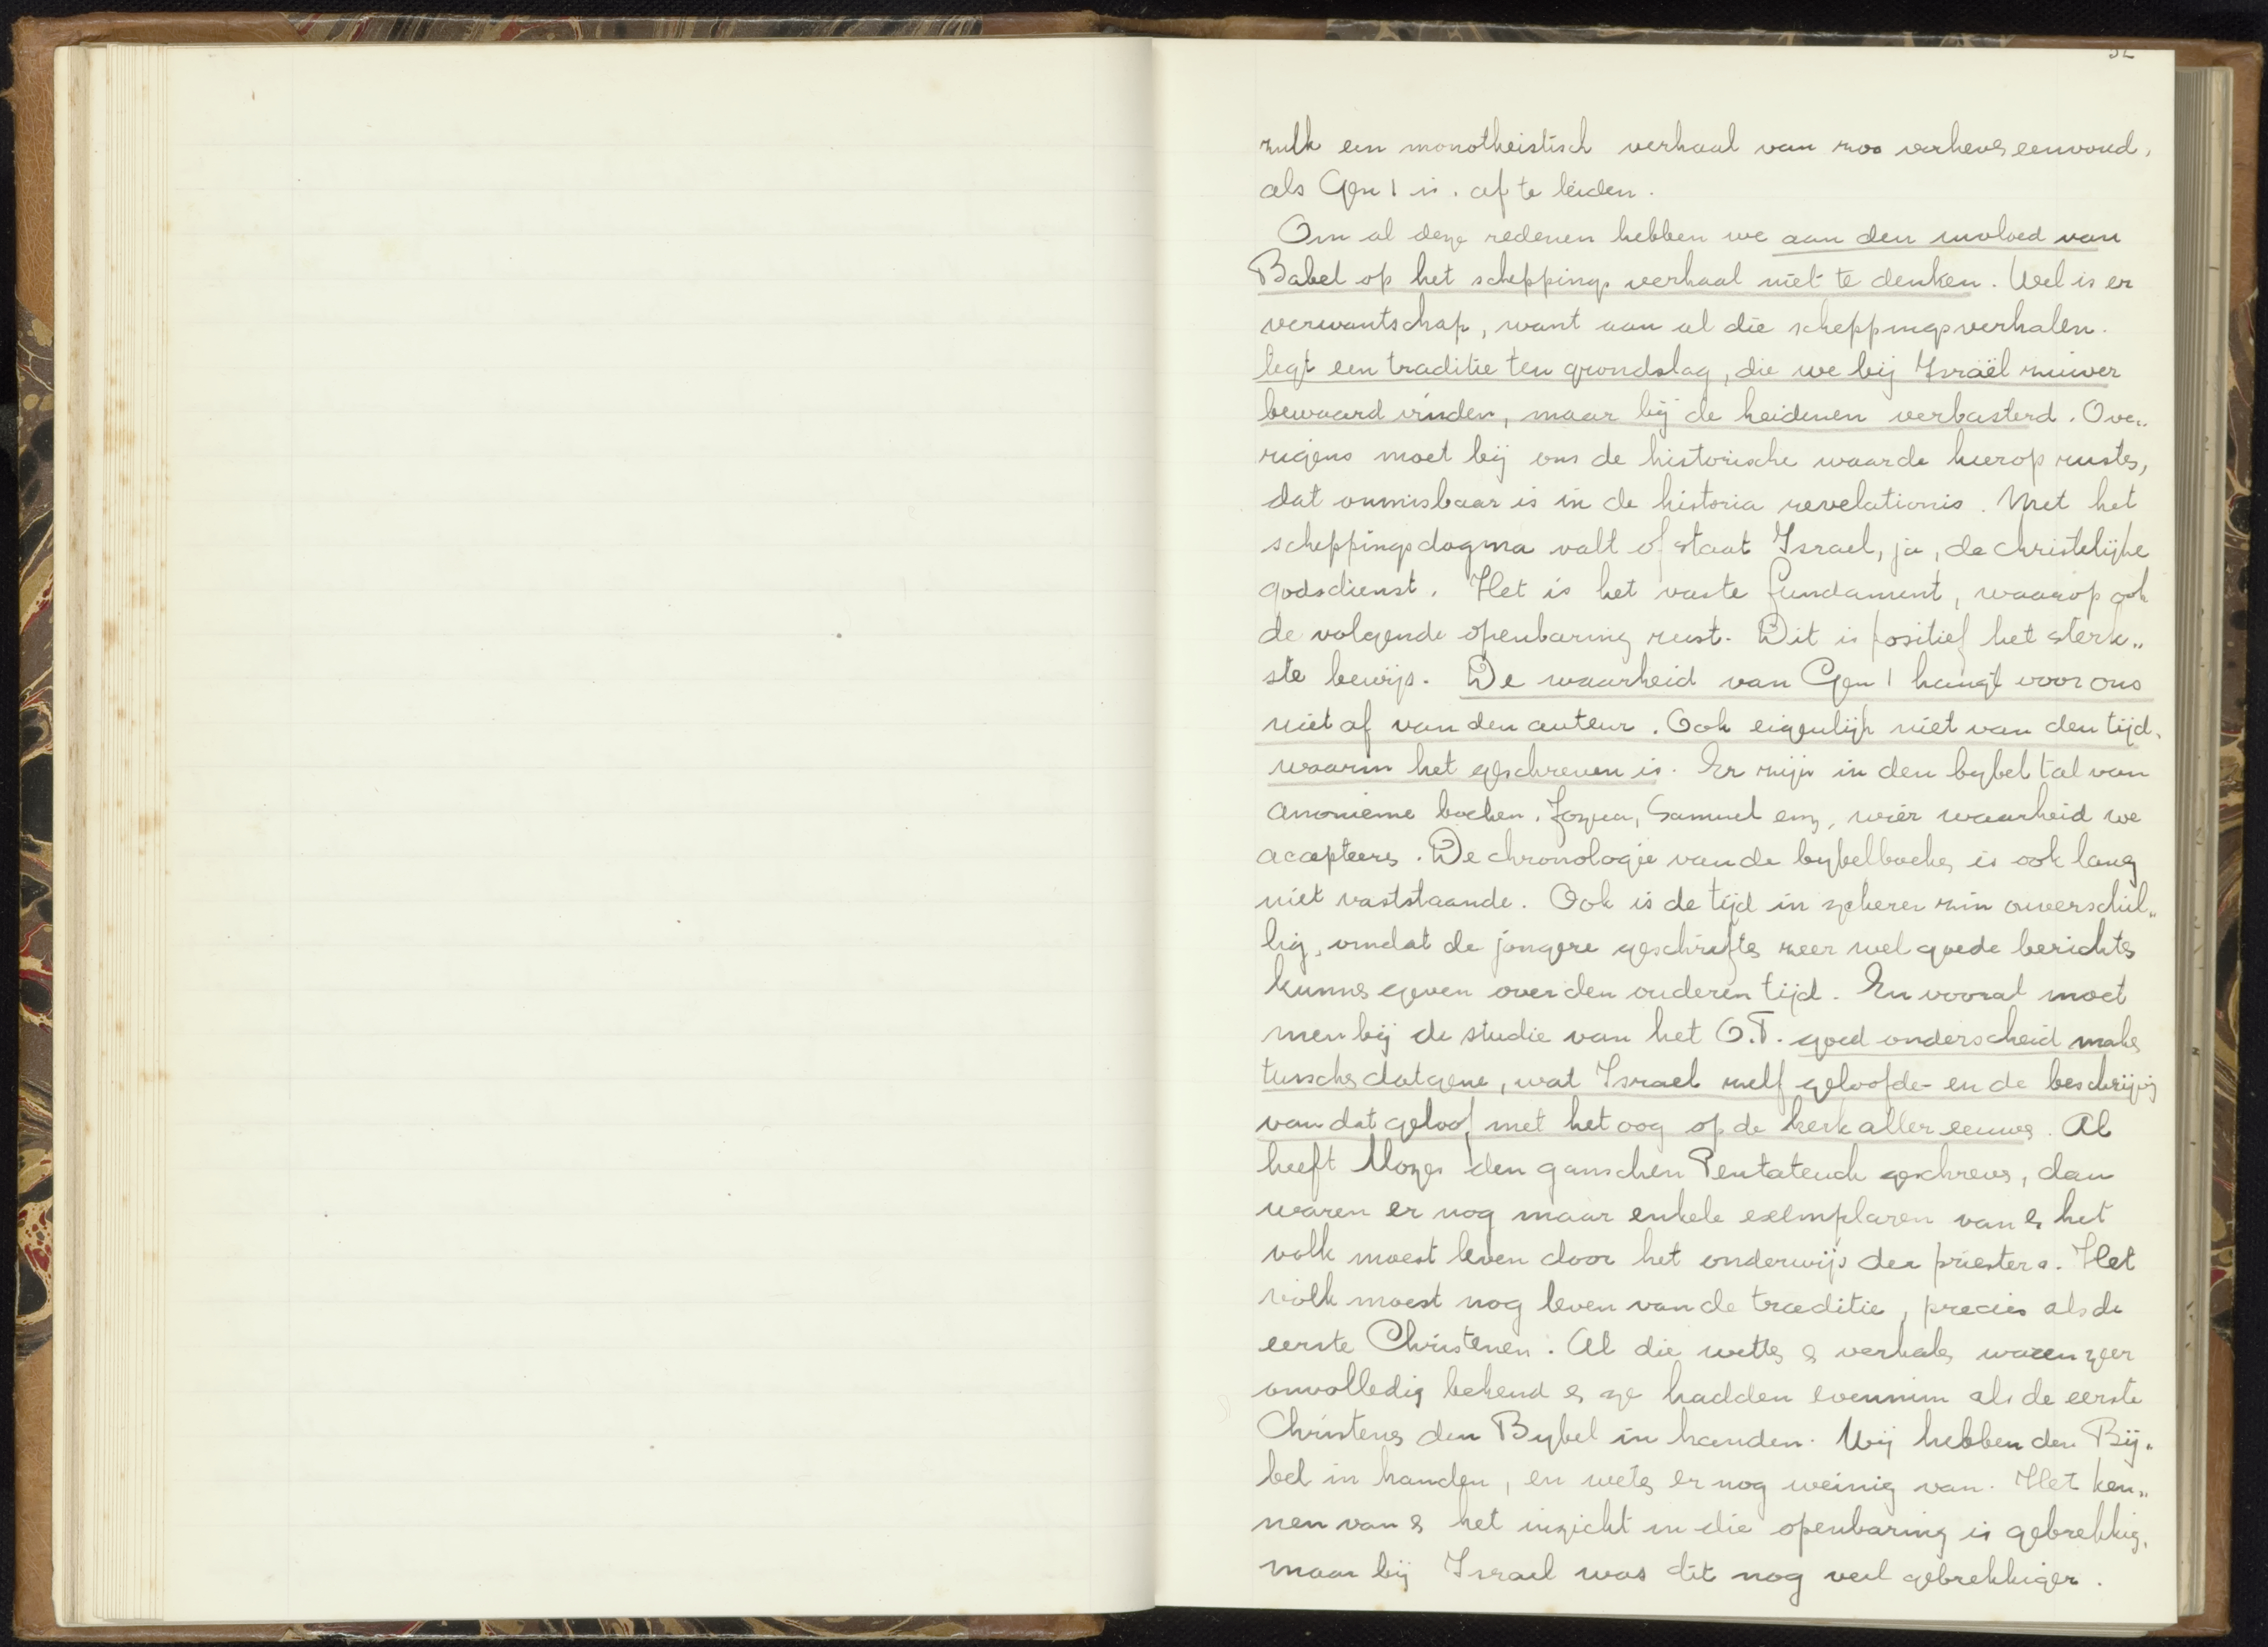 zulk een monotheistisch verhaal van zoo verheven eenvoud,
als Gen 1 is, af te leiden.
Om al deze redenen hebben we aan den invloed van
Babel op het scheppings verhaal niet te denken. Wel is er
verwantschap, want aan al die scheppingsverhalen
legt een traditie ten grondslag, die we bij Israël zuiver
bewaard vinden, maar bij de heidenen verbasterd. Ove„
rigens moet bij ons de historische waarde hierop rusten,
dat onmisbaar is in de historia revelationis. Met het
scheppingsdogma valt of staat Israel, ja, de christelijke
godsdienst. Het is het vaste fundament, waarop ook
de volgende openbaring rust. Dit is positief het sterk„
ste bewijs. De waarheid van Gen 1 hangt voor ons
niet af van den auteur. Ook eigenlijk niet van den tijd,
waarin het geschreven is. Er zijn in den bybel tal van
anonieme boeken, Jozua, Samuel enz, wier waarheid we
accepteeren. De chronologie van de bybelboeken is ook lang
niet vaststaande. Ook is de tijd in zekeren zin onverschil„
lig, omdat de jongere geschriften zeer wel goede berichten
kunnen geven over den ouderen tijd. En vooral moet
men bij de studie van het O.T. goed onderscheid maken
tusschen datgene, wat Israel zelf geloofde en de beschrijving
van dat geloof met het oog op de kerk aller eeuwen. Al
heeft Mozes den ganschen Pentateuch geschreven, dan
waren er nog maar enkele exemplaren van & het
volk moest leven door het onderwijs der priesters. Het
volk moest nog leven van de traditie, precies als de
eerste Christenen. Al die wetten & verhalen waren zeer
onvolledig bekend & ze hadden evenmin als de eerste
Christenen den Bybel in handen. Wij hebben den Bij„
bel in handen, en weten er nog weinig van. Het ken„
nen van & het inzicht in die openbaring is gebrekkig,
maar bij Israel was dit nog veel gebrekkiger.